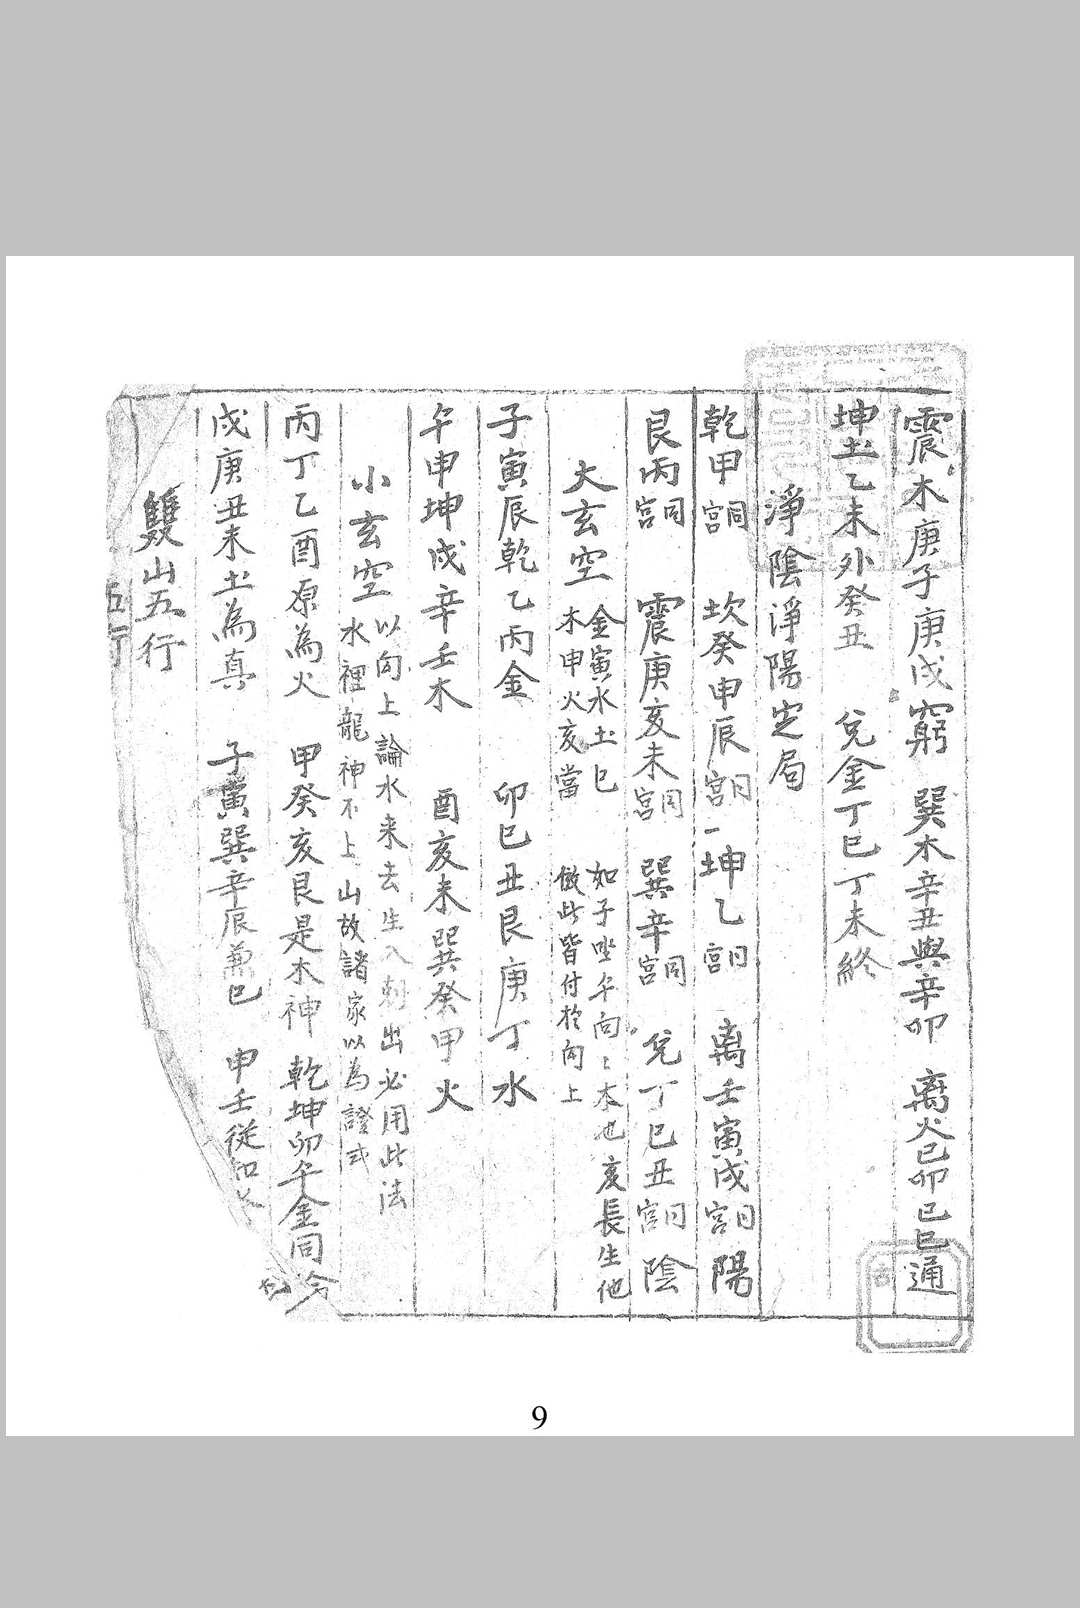 震木庚子庚戌窮　巽木辛丑與辛卯　离火己卯已巳通
坤土乙未外癸丑　兌金丁巳丁未終
淨陰淨陽定局
乾甲同宮　坎癸申辰同宮　坤乙同宮　离壬寅戌同宮　陽
艮丙同宮　震庚亥未同宮　巽辛同宮　兌丁巳丑同宮　陰
大玄空
金寅水土巳　如子坐午向〻木也　亥長生他
木申火亥當　倣此皆付於向上
子寅辰乾乙丙金　卯巳丑艮庚丁水
午申坤戌辛壬木　酉亥未巽癸甲火
小玄空
以向上論水来去生入剋出必用此法
水裡龍神不上山故諸家以為證式
丙丁乙酉原為火　甲癸亥艮是木神　乾坤卯午金同
戌庚丑未土為真　子寅巽辛辰兼巳　申壬從
雙山五行
五行
9